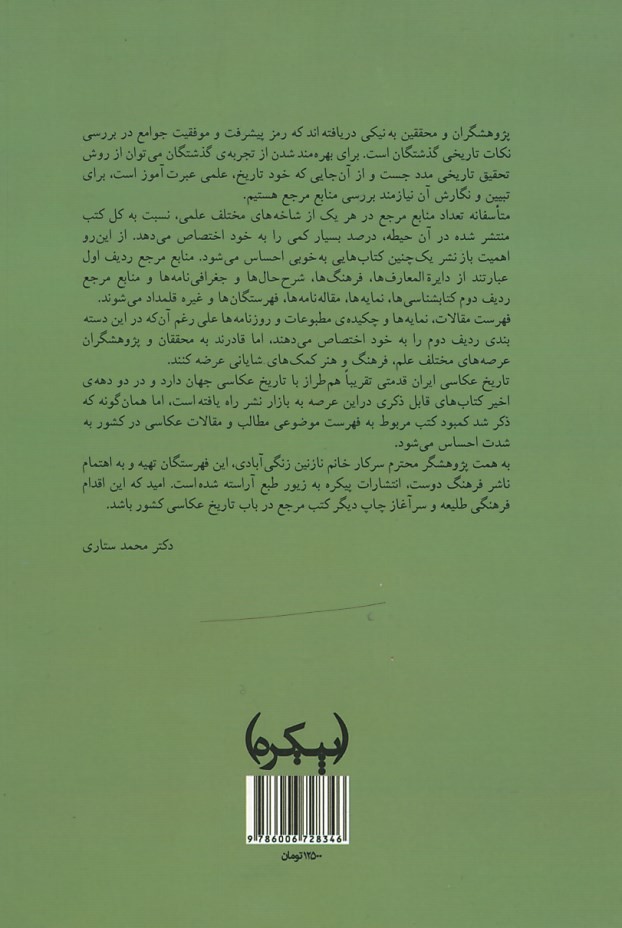 پژوهشگران و محققین به نیکی دریافته اند که رمز پیشرفت و موفقیت جوامع در بررسی
نکات تاریخی گذشتگان است. برای بهره‌مند شدن از تجربه‌ی گذشتگان می‌توان از روش
تحقیق تاریخی مدد جست و از آن‌جایی که خود تاریخ، علمی عبرت آموز است، برای
تبیین و نگارش آن نیازمند بررسی منابع مرجع هستیم.
متأسفانه تعداد منابع مرجع در هر یک از شاخه‌های مختلف علمی، نسبت به کل کتب
منتشر شده در آن حیطه، درصد بسیار کمی را به خود اختصاص می‌دهد. از این‌رو
اهمیت باز نشر یک چنین کتاب‌هایی به‌خوبی احساس می‌شود. منابع مرجع ردیف اول
عبارتند از دایرة‌المعارف‌ها، فرهنگ‌ها، شرح‌حال‌ها و جغرافی‌نامه‌ها و منابع مرجع
ردیف دوم کتابشناسی‌ها، نمایه‌ها، مقاله‌نامه‌ها، فهرستگان‌ها و غیره قلمداد می‌شوند.
فهرست مقالات، نمایه‌ها و چکیده‌ی مطبوعات و روزنامه‌ها علی رغم آن‌که در این دسته
بندی ردیف دوم را به خود اختصاص می‌دهند، اما قادرند به محققان و پژوهشگران
عرصه‌های مختلف علم، فرهنگ و هنر کمک‌های شایانی عرضه کنند.
تاریخ عکاسی ایران قدمتی تقریباً هم‌طراز با تاریخ عکاسی جهان دارد و در دو دهه‌ی
اخیر کتاب‌های قابل ذکری دراین عرصه به بازار نشر راه یافته است، اما همان‌گونه که
ذکر شد کمبود کتب مربوط به فهرست موضوعی مطالب و مقالات عکاسی در کشور به
شدت احساس می‌شود.
به همت پژوهشگر محترم سرکار خانم نازنین زنگی‌آبادی، این فهرستگان تهیه و به اهتمام
ناشر فرهنگ دوست، انتشارات پیکره به زیور طبع آراسته شده است. امید که این اقدام
فرهنگی طلیعه و سرآغاز چاپ دیگر کتب مرجع در باب تاریخ عکاسی کشور باشد.
دکتر محمد ستاری
(پیکره)
9 786006 728346
۱۲۵۰۰ تومان